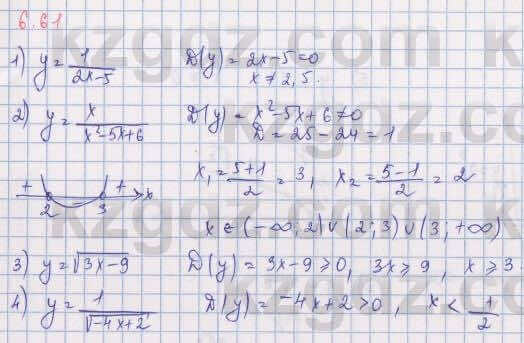 6.61
1) y = 1/(2x-5) D(y) = 2x-5=0
x ≠ 2,5.
2) y = x/(x²-5x+6) D(y) = x²-5x+6≠0
D = 25-24=1
x₁ = (5+1)/2 = 3, x₂ = (5-1)/2 = 2
+ + x
2 3
x ∈ (-∞; 2) ∪ (2; 3) ∪ (3; +∞)
3) y = √(3x-9) D(y) = 3x-9 ⩾ 0, 3x ⩾ 9, x ⩾ 3
4) y = 1/√(-4x+2) D(y) = -4x+2 > 0, x < 1/2
kzgoz.com
kzgoz.com
kzgoz.com